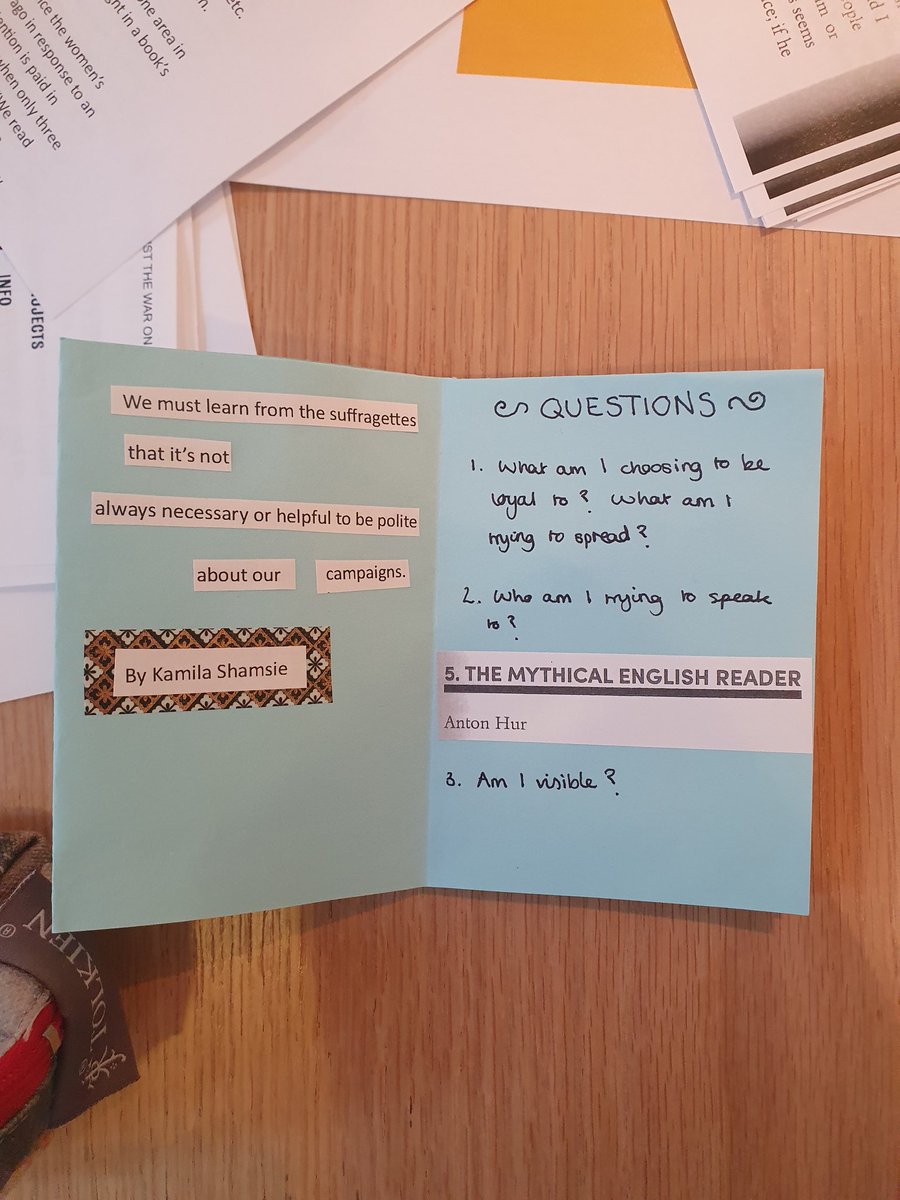 etc.
one area in
ice the women's
ght in a book's
ago in response to an
ention is paid in
when only three
We read
INFO
ST THE WAR ON
ople
d I
am or
s seems
ce; if he
We must learn from the suffragettes
that it's not
always necessary or helpful to be polite
about our campaigns.
By Kamila Shamsie
QUESTIONS
1. What am I choosing to be
loyal to? What am I
trying to spread?
2. Who am I trying to speak
to?
5. THE MYTHICAL ENGLISH READER
Anton Hur
3. Am I visible?
TOLKIEN
®